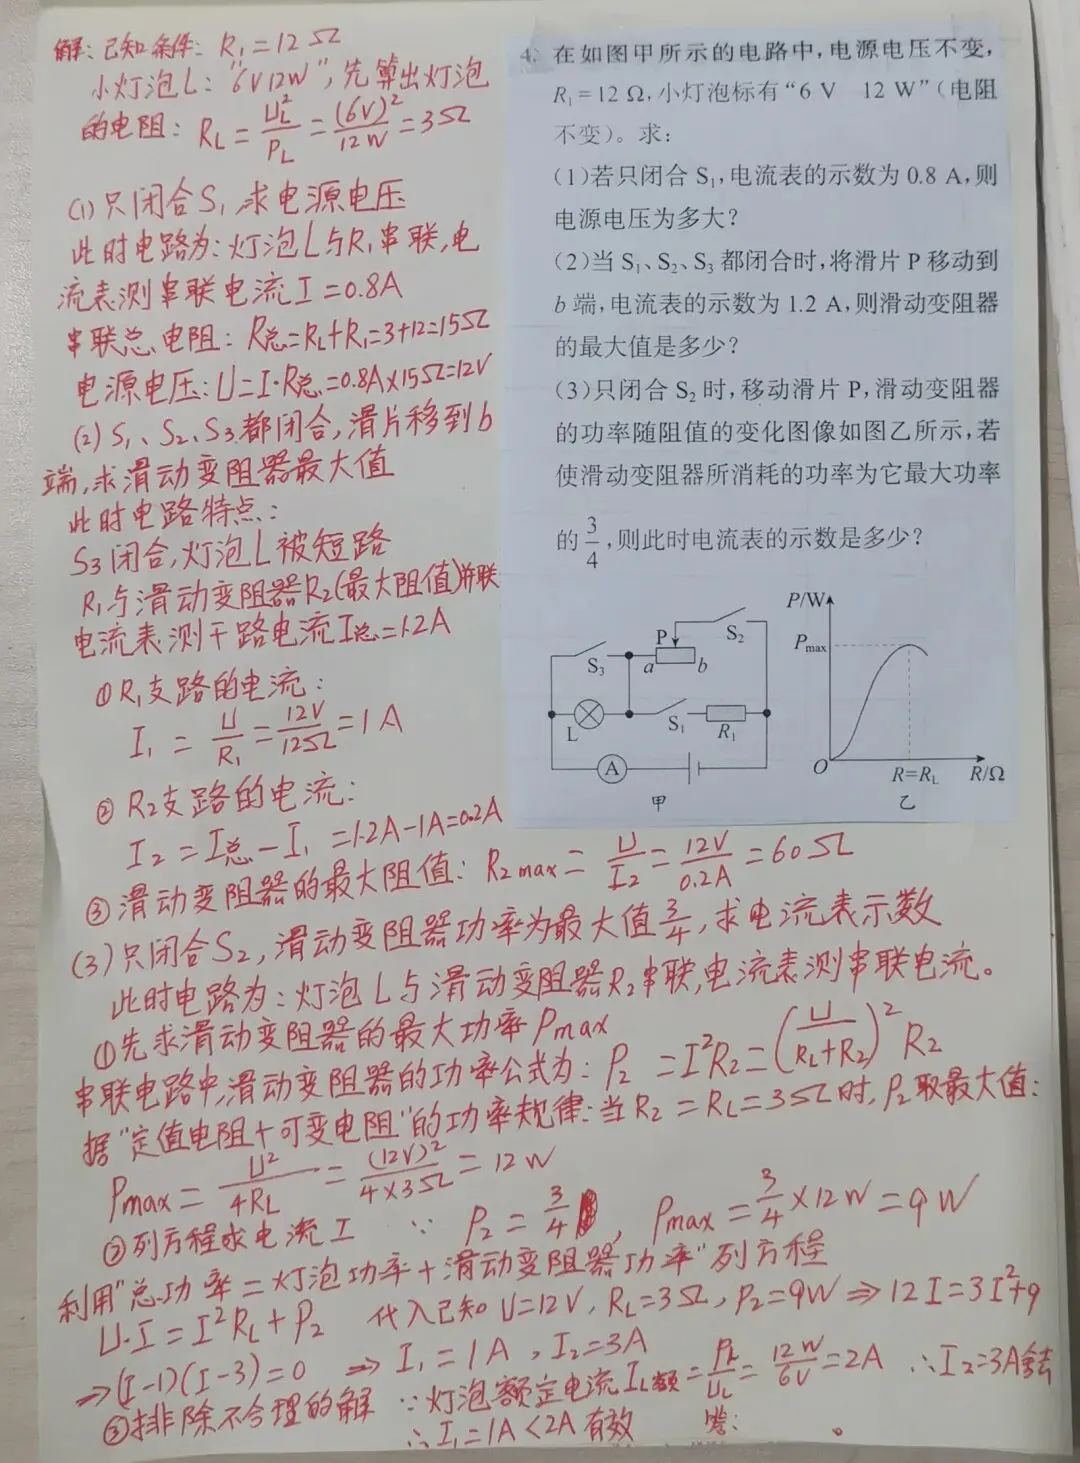 解：已知条件：R₁=12Ω
小灯泡L："6V12W"，先算出灯泡
的电阻：R_L = U_L²/P_L = (6V)²/12W = 3Ω
(1)只闭合S₁，求电源电压
此时电路为：灯泡L与R₁串联，电
流表测串联电流I=0.8A
串联总电阻：R总=R_L+R₁=3+12=15Ω
电源电压：U=I·R总=0.8A×15Ω=12V
(2)S₁、S₂、S₃都闭合，滑片移到b
端，求滑动变阻器最大值
此时电路特点：
S₃闭合，灯泡L被短路
R₁与滑动变阻器R₂(最大阻值)并联
电流表测干路电流I总=1.2A
①R₁支路的电流：
I₁ = U/R₁ = 12V/12Ω = 1A
②R₂支路的电流：
I₂=I总-I₁=1.2A-1A=0.2A
4. 在如图甲所示的电路中，电源电压不变，
R₁=12 Ω，小灯泡标有“6 V 12 W”(电阻
不变)。求：
(1)若只闭合 S₁，电流表的示数为 0.8 A，则
电源电压为多大？
(2)当 S₁、S₂、S₃ 都闭合时，将滑片 P 移动到
b 端，电流表的示数为 1.2 A，则滑动变阻器
的最大值是多少？
(3)只闭合 S₂ 时，移动滑片 P，滑动变阻器
的功率随阻值的变化图像如图乙所示，若
使滑动变阻器所消耗的功率为它最大功率
的 3/4，则此时电流表的示数是多少？
P S₂
S₃ a b
L S₁ R₁
A
甲
P/W
Pmax
O R=R_L R/Ω
乙
③滑动变阻器的最大阻值：R₂max = U/I₂ = 12V/0.2A = 60Ω
(3)只闭合S₂，滑动变阻器功率为最大值3/4，求电流表示数
此时电路为：灯泡L与滑动变阻器R₂串联，电流表测串联电流。
①先求滑动变阻器的最大功率Pmax
串联电路中，滑动变阻器的功率公式为：P₂ = I²R₂ = (U/(R_L+R₂))² R₂
据"定值电阻+可变电阻"的功率规律：当R₂=R_L=3Ω时，P₂取最大值：
Pmax = U²/4R_L = (12V)²/4×3Ω = 12W
②列方程求电流I ∵ P₂ = 3/4, Pmax = 3/4×12W = 9W
利用"总功率=灯泡功率+滑动变阻器功率"列方程
U·I=I²R_L+P₂ 代入已知U=12V, R_L=3Ω, P₂=9W ⇒ 12I=3I²+9
⇒(I-1)(I-3)=0 ⇒ I₁=1A, I₂=3A
③排除不合理的解 ∵灯泡额定电流I_L额=P_L/U_L=12W/6V=2A ∴I₂=3A舍去
∴I₁=1A<2A有效 答： 。